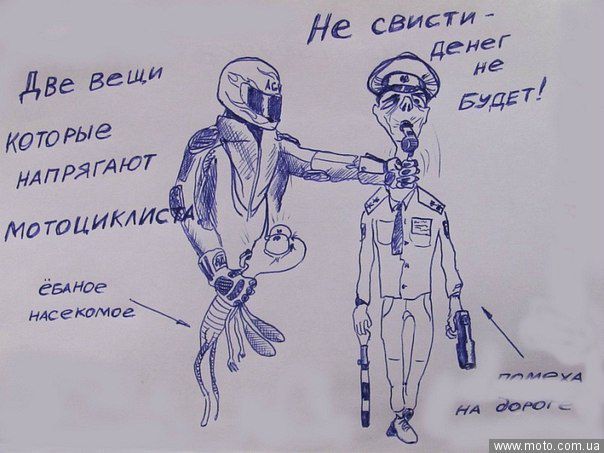 Две вещи
которые
напрягают
мотоциклиста
Не свисти -
денег
не
будет!
AGV
ёбаное
насекомое
помеха
на дороге
www.moto.com.ua